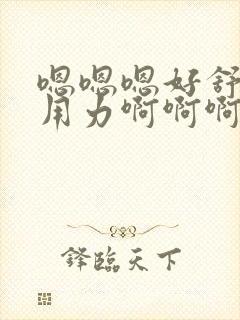 嗯嗯嗯好舒
用力啊啊啊
锋临天下